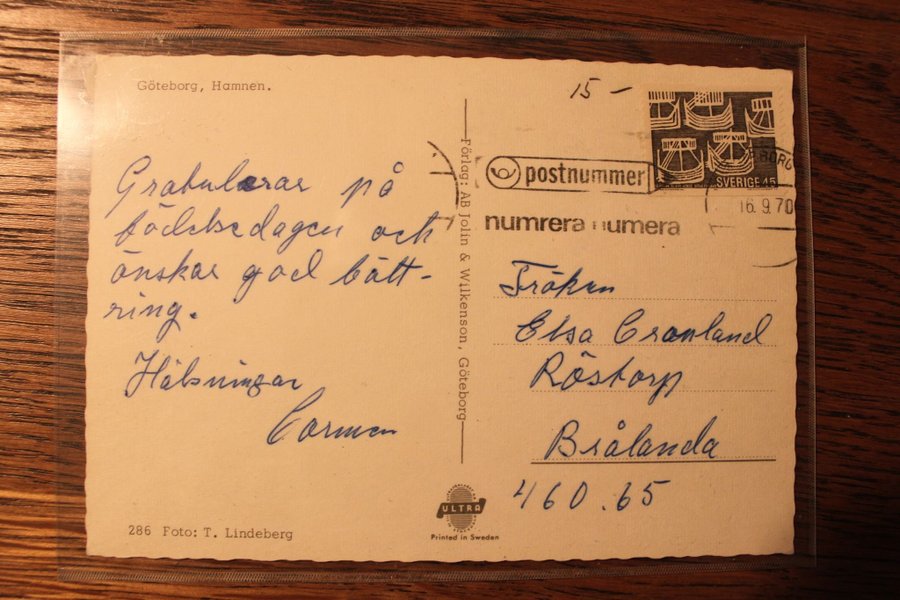 Göteborg, Hamnen.
15 -
SVERIGE 45
BORG
16.9.70
postnummer
numrera numera
Gratulerar på
födelsedagen och
önskar god bätt-
ring.
Hälsningar
Carmen
Förlag: AB Jolin & Wilkenson, Göteborg
Fröken
Elsa Cronland
Röstorp
Brålanda
460.65
286 Foto: T. Lindeberg
ULTRA
Printed in Sweden